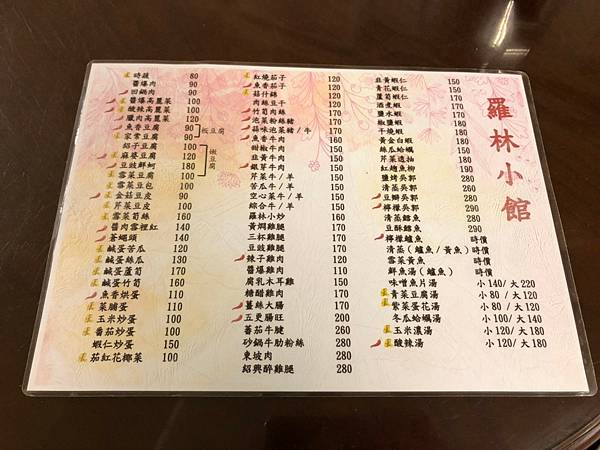 羅林小館
時蔬 80
醬爆肉 90
回鍋肉 90
醬爆高麗菜 100
酸辣高麗菜 120
臘肉高麗菜 110
魚香豆腐 90
家常豆腐 90
板豆腐
紹子豆腐 100
麻婆豆腐 120
豆豉鮮蚵 180
嫩豆腐
雪菜豆腐 100
雪菜豆包 100
金菇豆皮 90
芹菜豆皮 90
雪菜筍絲 160
醬肉雲裡紅 140
蒼蠅頭 140
鹹蛋苦瓜 120
鹹蛋絲瓜 130
鹹蛋蘆筍 170
鹹蛋竹筍 160
魚香烘蛋 110
菜脯蛋 110
玉米炒蛋 100
番茄炒蛋 100
蝦仁炒蛋 150
茄紅花椰菜 100
紅燒茄子 120
魚香茄子 120
菇什錦 120
肉絲豆干 120
竹筍肉絲 170
泡菜粉絲豬 170
蒜味泡菜豬/牛 170
魚香牛肉 160
甜椒牛肉 150
韭黃牛肉 150
蝦芽牛肉 150
芹菜牛/羊 150
苦瓜牛/羊 150
空心菜牛/羊 150
綜合牛/羊 150
羅林小炒 160
黃燜雞腿 170
三杯雞腿 170
豆豉雞腿 170
辣子雞肉 170
醬爆雞肉 170
腐乳木耳雞 150
糖醋雞肉 170
薑絲大腸 170
五更腸旺 200
蕃茄牛腱 260
砂鍋牛肋粉絲 280
東坡肉 280
紹興醉雞腿 280
韭黃蝦仁 150
青花蝦仁 150
蘆筍蝦仁 170
酒煮蝦 170
鹽水蝦 170
椒鹽蝦 180
干燒蝦 180
黃金白蝦 180
絲瓜蛤蠣 150
芹菜透抽 180
紅翅魚柳 180
鹽烤吳郭 280
清蒸吳郭 280
豆瓣吳郭 290
檸檬吳郭 290
清蒸鱈魚 280
豆酥鱈魚 290
檸檬鱸魚 時價
清蒸(鱸魚/黃魚) 時價
雪菜黃魚 時價
鮮魚湯(鱸魚) 時價
味噌魚片湯 小140/大220
青菜豆腐湯 小80/大120
紫菜蛋花湯 小80/大120
冬瓜蛤蠣湯 小100/大140
玉米濃湯 小120/大180
酸辣湯 小120/大180